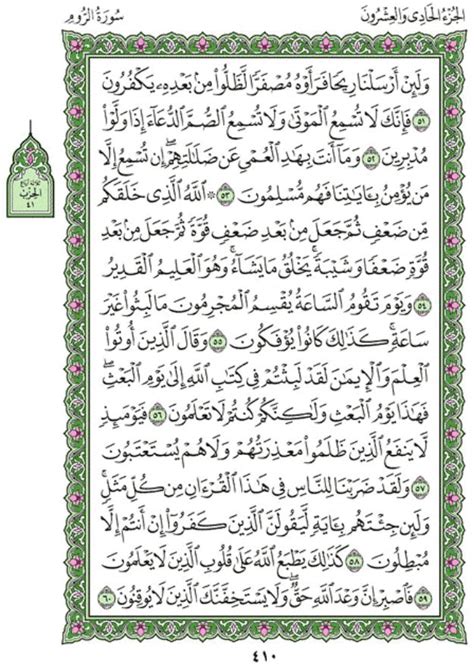 الجُزْءُ الحَادِي وَالعِشْرُونَ
سُورَةُ الرُّومِ
وَلَئِنْ أَرْسَلْنَا رِيحًا فَرَأَوْهُ مُصْفَرًّا لَّظَلُّوا۟ مِنۢ بَعْدِهِۦ يَكْفُرُونَ
٥١ فَإِنَّكَ لَا تُسْمِعُ ٱلْمَوْتَىٰ وَلَا تُسْمِعُ ٱلصُّمَّ ٱلدُّعَآءَ إِذَا وَلَّوْا۟
مُدْبِرِينَ ٥٢ وَمَآ أَنتَ بِهَٰدِ ٱلْعُمْىِ عَن ضَلَٰلَتِهِمْ ۖ إِن تُسْمِعُ إِلَّا
مَن يُؤْمِنُ بِـَٔايَٰتِنَا فَهُم مُّسْلِمُونَ ٥٣ ۞ ٱللَّهُ ٱلَّذِى خَلَقَكُم
مِّن ضَعْفٍ ثُمَّ جَعَلَ مِنۢ بَعْدِ ضَعْفٍ قُوَّةً ثُمَّ جَعَلَ مِنۢ بَعْدِ
قُوَّةٍ ضَعْفًا وَشَيْبَةً ۚ يَخْلُقُ مَا يَشَآءُ ۖ وَهُوَ ٱلْعَلِيمُ ٱلْقَدِيرُ
٥٤ وَيَوْمَ تَقُومُ ٱلسَّاعَةُ يُقْسِمُ ٱلْمُجْرِمُونَ مَا لَبِثُوا۟ غَيْرَ
سَاعَةٍ ۚ كَذَٰلِكَ كَانُوا۟ يُؤْفَكُونَ ٥٥ وَقَالَ ٱلَّذِينَ أُوتُوا۟
ٱلْعِلْمَ وَٱلْإِيمَٰنَ لَقَدْ لَبِثْتُمْ فِى كِتَٰبِ ٱللَّهِ إِلَىٰ يَوْمِ ٱلْبَعْثِ ۖ
فَهَٰذَا يَوْمُ ٱلْبَعْثِ وَلَٰكِنَّكُمْ كُنتُمْ لَا تَعْلَمُونَ ٥٦ فَيَوْمَئِذٍ
لَّا يَنفَعُ ٱلَّذِينَ ظَلَمُوا۟ مَعْذِرَتُهُمْ وَلَا هُمْ يُسْتَعْتَبُونَ
٥٧ وَلَقَدْ ضَرَبْنَا لِلنَّاسِ فِى هَٰذَا ٱلْقُرْءَانِ مِن كُلِّ مَثَلٍ ۚ
وَلَئِن جِئْتَهُم بِـَٔايَةٍ لَّيَقُولَنَّ ٱلَّذِينَ كَفَرُوٓا۟ إِنْ أَنتُمْ إِلَّا
مُبْطِلُونَ ٥٨ كَذَٰلِكَ يَطْبَعُ ٱللَّهُ عَلَىٰ قُلُوبِ ٱلَّذِينَ لَا يَعْلَمُونَ
٥٩ فَٱصْبِرْ إِنَّ وَعْدَ ٱللَّهِ حَقٌّ ۖ وَلَا يَسْتَخِفَّنَّكَ ٱلَّذِينَ لَا يُوقِنُونَ ٦٠
الحِزْب
٤١
٤١٠